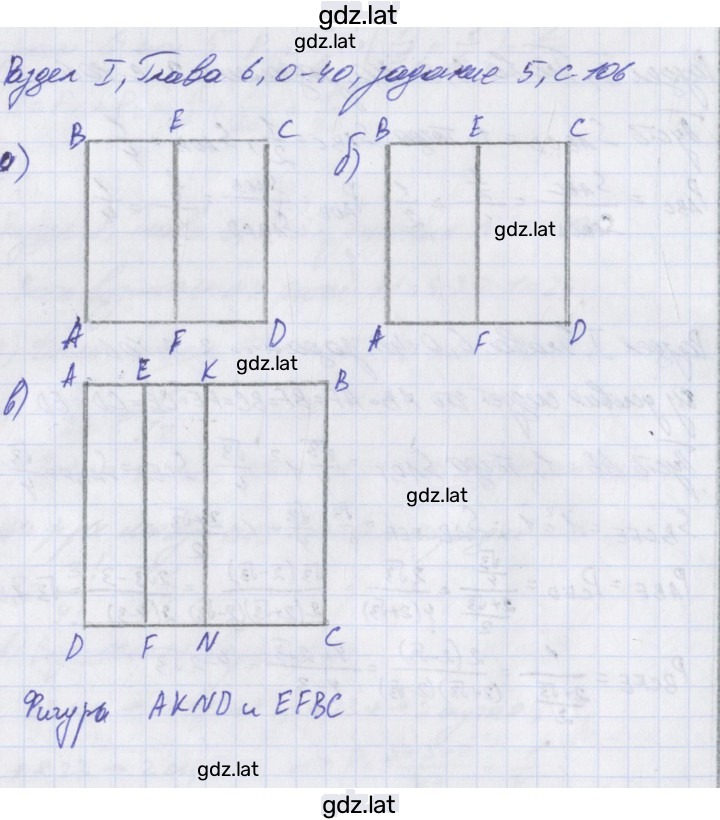 gdz.lat
gdz.lat
Раздел I, Глава 6, О-40, задание 5, с. 106
а)
B E C
A F D
б)
B E C
gdz.lat
A F D
gdz.lat
в)
A E K B
gdz.lat
D F N C
Фигуры AKND и EFBC
gdz.lat
gdz.lat